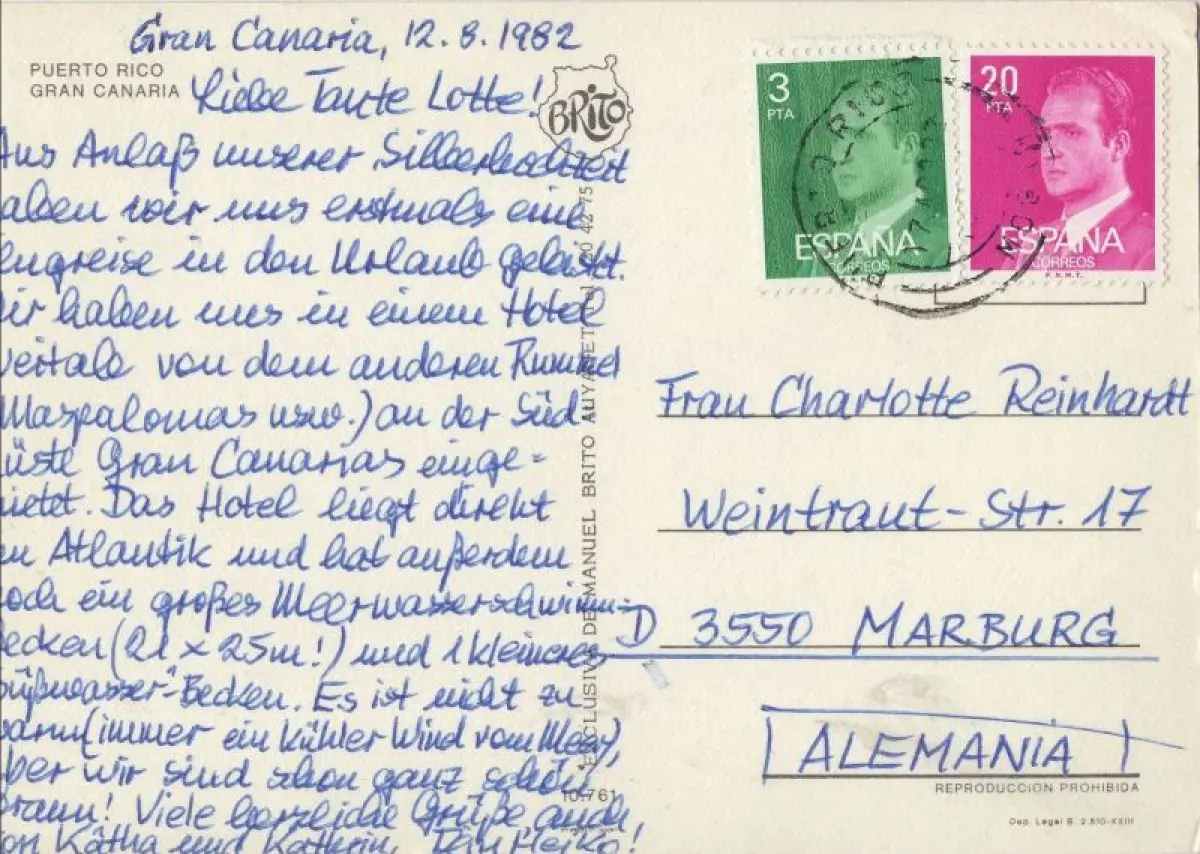 Gran Canaria, 12.8.1982
PUERTO RICO
GRAN CANARIA
Liebe Tante Lotte!
BRITO
Aus Anlaß unserer Silberhochzeit
aben wir uns erstmals eine
lugreise in den Urlaub geleistet.
ir haben uns in einem Hotel
von dem anderen Rummel
Maspalomas usw.) an der Süd
üste Gran Canarias einge=
ietet. Das Hotel liegt direkt
m Atlantik und hat außerdem
och ein großes Meerwasserschwimm=
ecken (21 x 25m!) und 1 kleineres
üßwasser-Becken. Es ist nicht zu
warm (immer ein kühler Wind vom Meer),
ber wir sind schon ganz schön
braun! Viele herzliche Grüße auch
von Kätha und Kathrin, Dein Heiko!
EXCLUSIVE DE MANUEL BRITO AUYANET
10.761
3
PTA
ESPAÑA
CORREOS
20
PTA
ESPAÑA
CORREOS
F.N.M.T.
PUERTO RICO
Frau Charlotte Reinhardt
Weintraut-Str. 17
D 3550 MARBURG
ALEMANIA
REPRODUCCION PROHIBIDA
Dep. Legal B. 2.510-XXIII